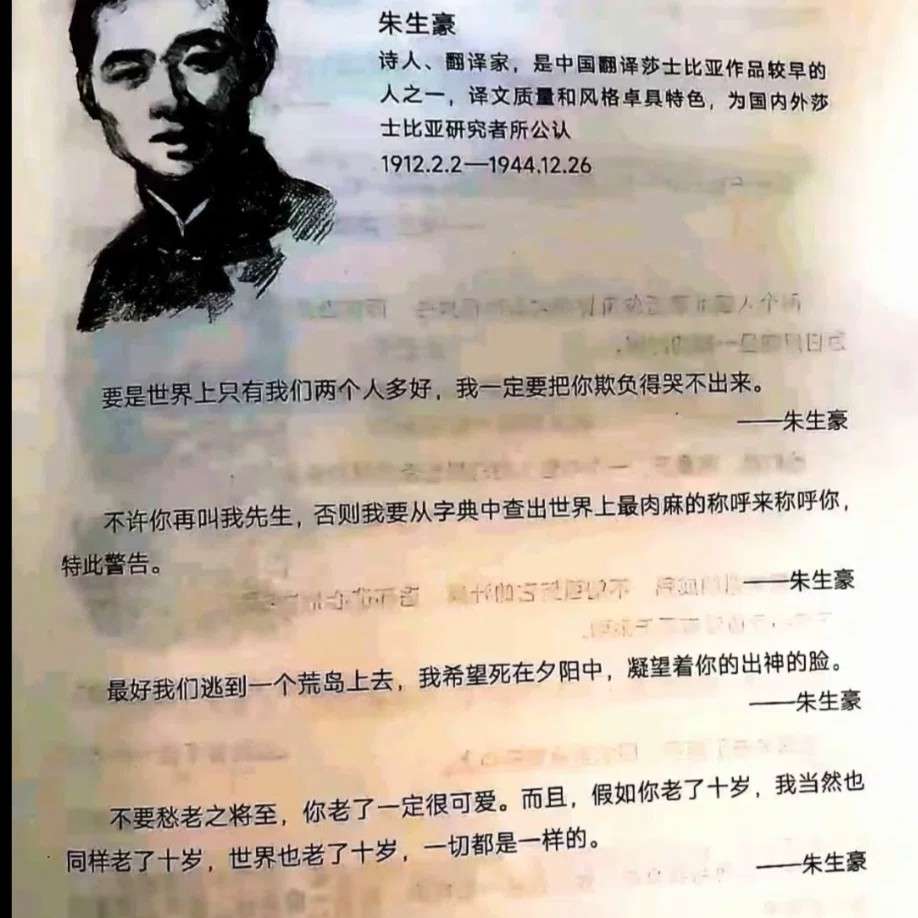 朱生豪
诗人、翻译家，是中国翻译莎士比亚作品较早的
人之一，译文质量和风格卓具特色，为国内外莎
士比亚研究者所公认
1912.2.2—1944.12.26
要是世界上只有我们两个人多好，我一定要把你欺负得哭不出来。
——朱生豪
不许你再叫我先生，否则我要从字典中查出世界上最肉麻的称呼来称呼你，
特此警告。
——朱生豪
最好我们逃到一个荒岛上去，我希望死在夕阳中，凝望着你的出神的脸。
——朱生豪
不要愁老之将至，你老了一定很可爱。而且，假如你老了十岁，我当然也
同样老了十岁，世界也老了十岁，一切都是一样的。
——朱生豪